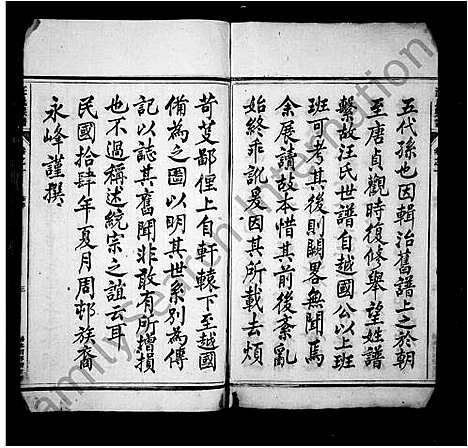 五代孫也因輯治舊譜上之於朝
至唐貞觀時復修舉望姓譜
繫故汪氏世譜自越國公以上班
班可考其後則闕畧無聞焉
余展讀故本惜其前後紊亂
始終乖訛爰因其所載去煩
苛芟鄙俚上自軒轅下至越國
備為之圖以明其世系別為傳
記以誌其舊聞非敢有所增損
也不過稱述統宗之誼云耳
民國拾肆年夏月周邨族裔
永峰謹撰
FamilySearch International